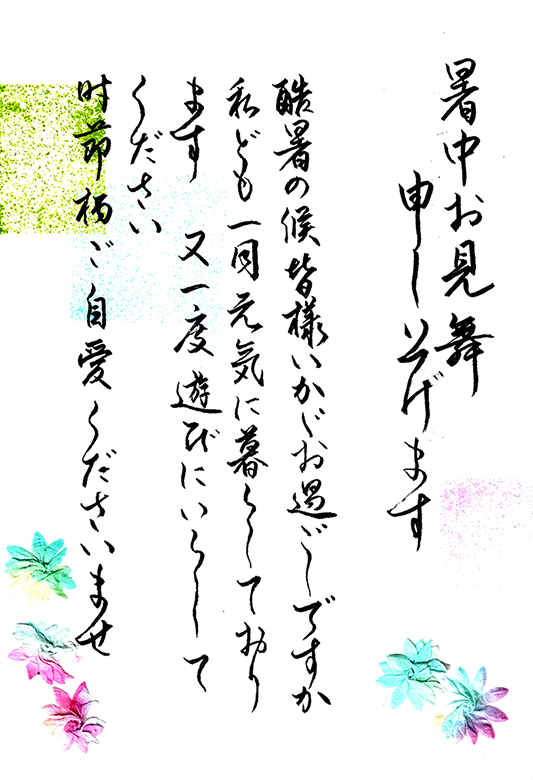 暑中お見舞
申し上げます
酷暑の候皆様いかがお過ごしですか
私ども一同元気に暮らしており
ます 又一度遊びにいらして
ください
時節柄ご自愛くださいませ